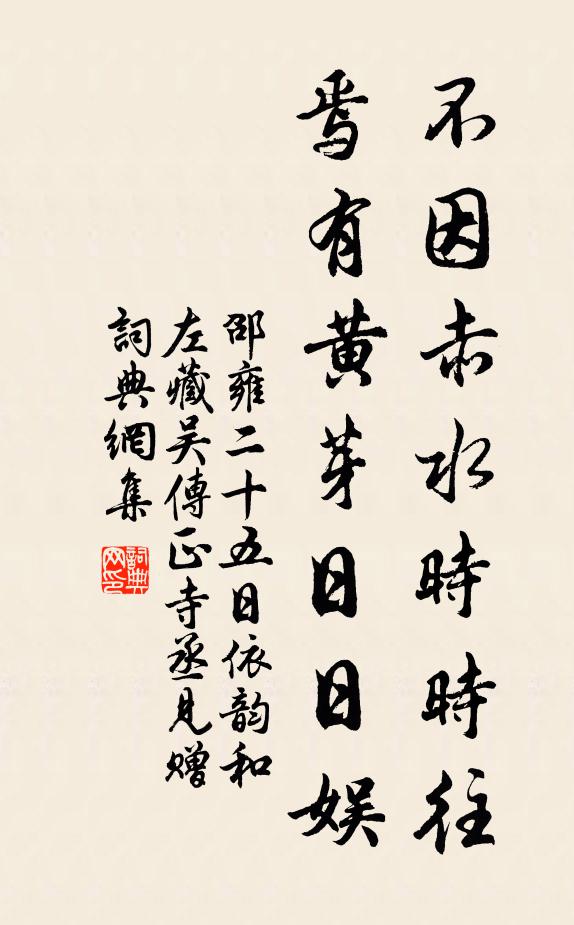 不因赤水時時往
焉有黃芽日日娛
邵雍二十五日依韵和
左藏吴傳正寺丞見贈
詞典網集
詞典网印